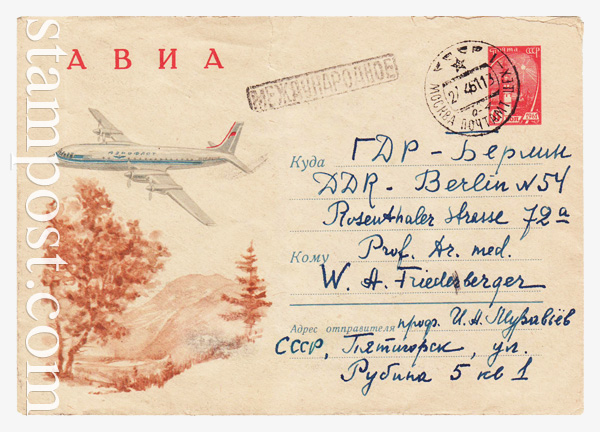 АВИА
МЕЖДУНАРОДНОЕ
ПОЧТА СССР
МОСКВА ПОЧТАМТ
АЭРОФЛОТ
Куда ГДР - Берлин
DDR - Berlin N 54
Rosenthaler Strasse 72a
Кому Prof. Dr. med.
W. A. Friederberger
Адрес отправителя проф. И. Н. Муравьёв
СССР, Пятигорск, ул.
Рубина 5 кв 1
stampost.com